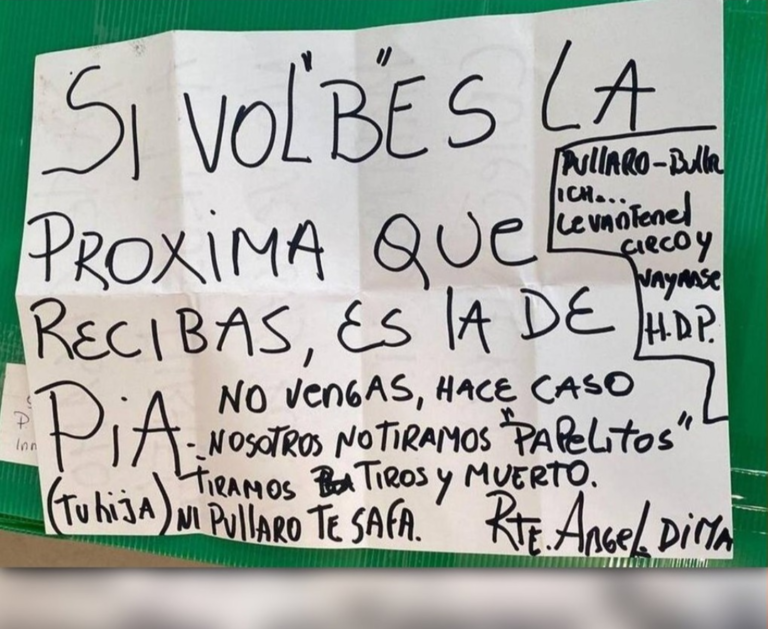 SI VOL"B"ES LA
PROXIMA QUE
RECIBAS, ES lA DE
PiA.
(TuhijA)
NO VenGAS, HACE CASO
NOSOTROS NO TIRAMOS "PAPeLiTOS"
TIRAMOS TIROS y MUERTO.
NI PUllARO TE SAFA.
RTE. ANGeL DiMA
PUllARO-Bullr
ICH...
LevANTEN el
CIRCO y
VAYANSE
H.D.P.